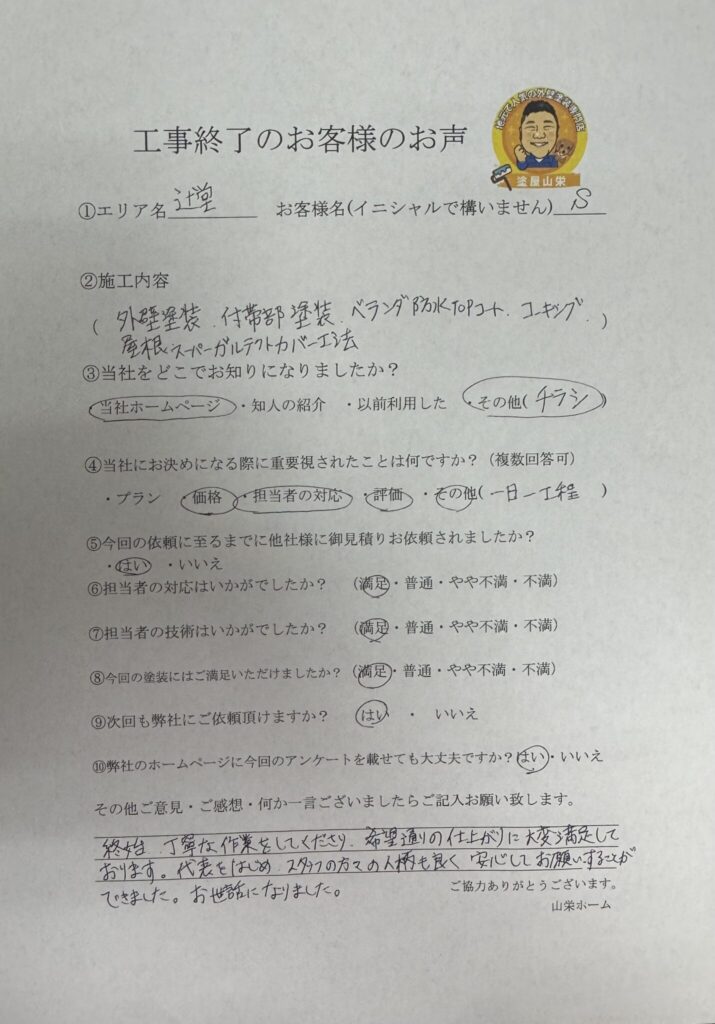 工事終了のお客様のお声
地元で人気の外壁塗装専門店
塗屋山栄
①エリア名 辻堂 お客様名(イニシャルで構いません) S
②施工内容
( 外壁塗装、付帯部塗装、ベランダ防水TOPコート、コーキング、 )
屋根スーパーガルテクトカバー工法
③当社をどこでお知りになりましたか？
・当社ホームページ ・知人の紹介 ・以前利用した ・その他( チラシ )
④当社にお決めになる際に重要視されたことは何ですか？（複数回答可）
・プラン ・価格 ・担当者の対応 ・評価 ・その他( 一日一工程 )
⑤今回の依頼に至るまでに他社様に御見積りお依頼されましたか？
・はい ・いいえ
⑥担当者の対応はいかがでしたか？ （満足・普通・やや不満・不満）
⑦担当者の技術はいかがでしたか？ （満足・普通・やや不満・不満）
⑧今回の塗装にはご満足いただけましたか？（満足・普通・やや不満・不満）
⑨次回も弊社にご依頼頂けますか？ はい ・ いいえ
⑩弊社のホームページに今回のアンケートを載せても大丈夫ですか？はい・いいえ
その他ご意見・ご感想・何か一言ございましたらご記入お願い致します。
終始、丁寧な作業をしてくださり、希望通りの仕上がりに大変満足して
おります。代表をはじめ、スタッフの方々の人柄も良く、安心してお願いすることが
できました。お世話になりました。
ご協力ありがとうございます。
山栄ホーム